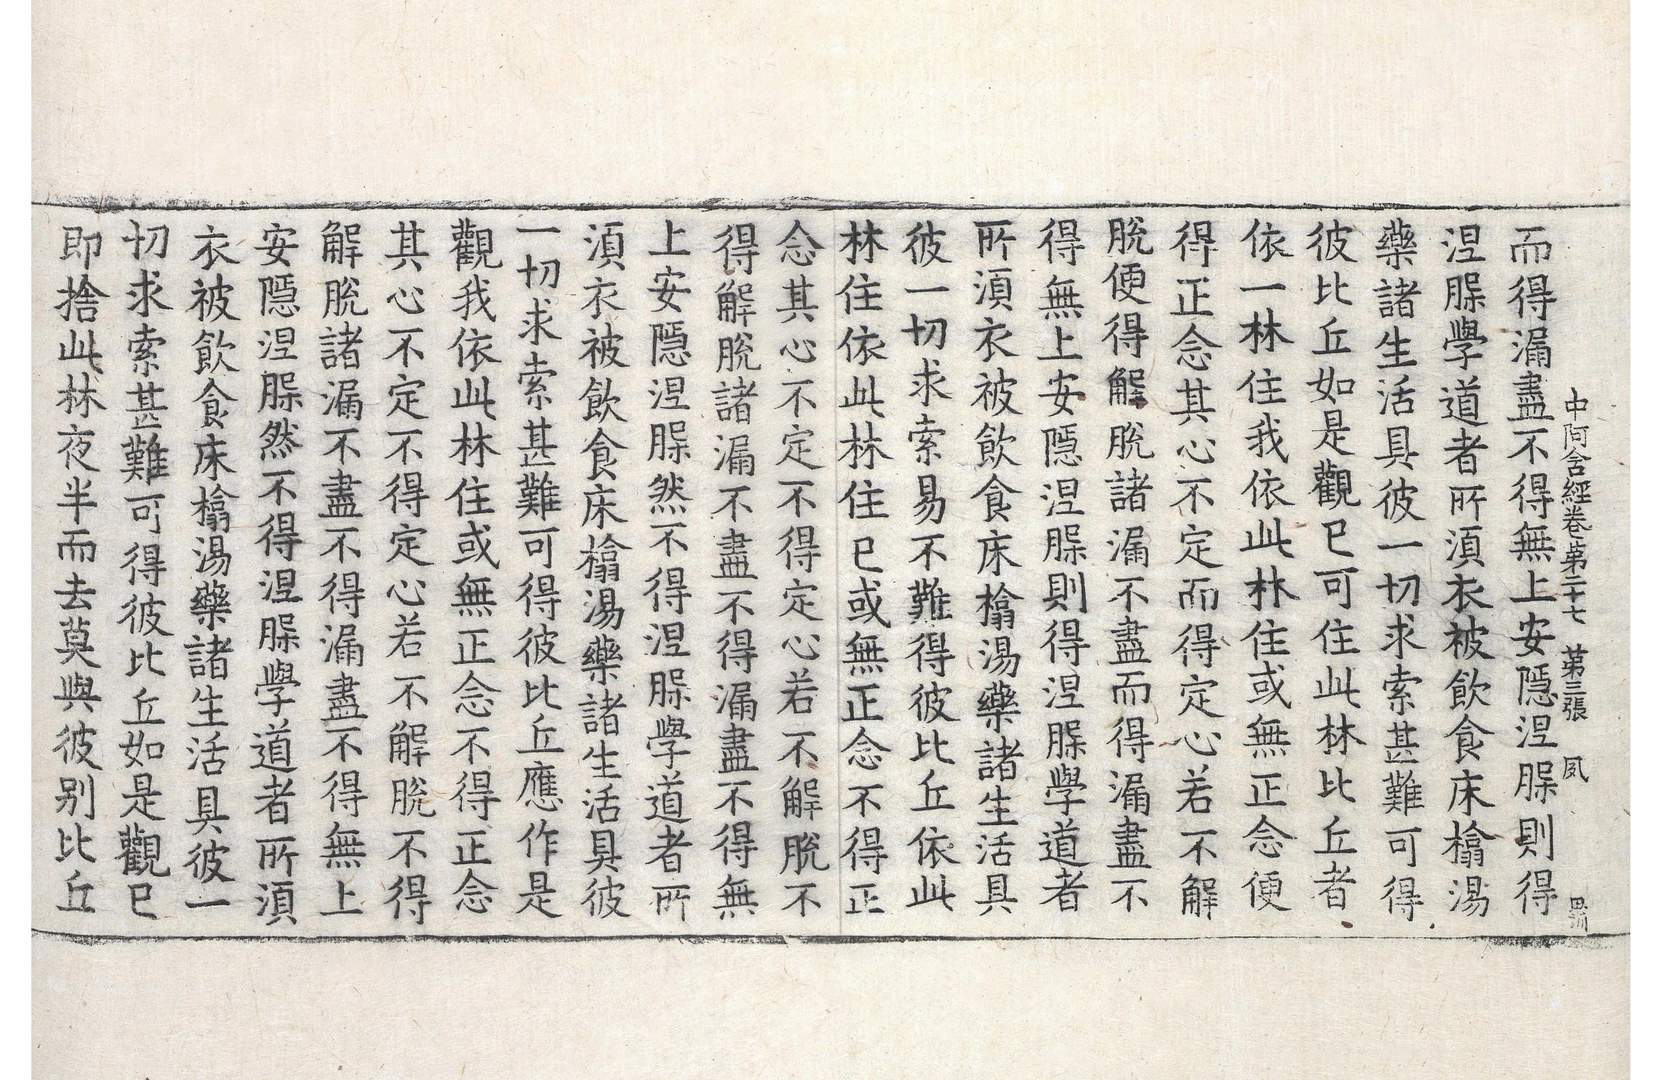 中阿含經卷第二十七 第三張 夙
而得漏盡不得無上安隱涅槃則得
涅槃學道者所須衣被飲食床榻湯
藥諸生活具彼一切求索甚難可得
彼比丘如是觀已可住此林比丘者
依一林住我依此林住或無正念便
得正念其心不定而得定心若不解
脫便得解脫諸漏不盡而得漏盡不
得無上安隱涅槃則得涅槃學道者
所須衣被飲食床榻湯藥諸生活具
彼一切求索易不難得彼比丘依此
林住依此林住已或無正念不得正
念其心不定不得定心若不解脫不
得解脫諸漏不盡不得漏盡不得無
上安隱涅槃然不得涅槃學道者所
須衣被飲食床榻湯藥諸生活具彼
一切求索甚難可得彼比丘應作是
觀我依此林住或無正念不得正念
其心不定不得定心若不解脫不得
解脫諸漏不盡不得漏盡不得無上
安隱涅槃然不得涅槃學道者所須
衣被飲食床榻湯藥諸生活具彼一
切求索甚難可得彼比丘如是觀已
即捨此林夜半而去莫與彼別比丘